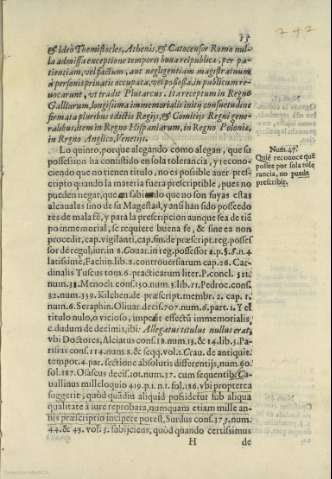 55
& ideò Themistocles, Athenis, & Catocensor Romæ nul-
la admissa exceptione temporis bona reipublicæ, per pa-
tientiam, vel pactum, aut negligentiam magistratuum
à personis privatis occupata, vel possessa, in publicum re-
vocarunt, ut tradit Plutarcus. Ita receptum in Regno
Galliarum, longissima immemorialis initij consuetudine
firmata pluribus edictis Regijs, & Comitijs Regni gene-
ralibus, item in Regno Hispaniarum, in Regno Poloniæ,
in Regno Anglico, Venetijs.
Lo quinto, porque alegando como alegan, que sa
possession ha consistido en sola tolerancia, y recono-
ciendo que no tienen titulo, no es possible auer pres-
cripto quando la materia fuera prescriptible, pues no
pueden negar, que an sabido que no son suyas estas
alcaualas sino de sa Magestad, y ansi han sido possedo-
res de mala fè, y para la prescripcion aunque sea de tiē
po immemorial, se requiere buena fe, & sine ea non
procedit, cap. vigilanti, cap. fin. de præscript. reg. posses-
sor de regul. iur. in 6. Couar. in reg. possessor 2. p. §. 8. n. 4
latissimè, Fachin. lib. 8. controuersiarum cap. 28. Car-
dinalis Tuscus tom. 6. practicarum liter. P. concl. 521.
num. 38. Menoch. cons. 150. num. 5. lib. 11. Pedroc. cons.
32. num. 159. Kilchen. de præscript. membr. 2. cap. 1.
num. 6. Seraphin. Oliuar. decis. 707. num. 6. part. 1. Y el
titulo nulo, o vicioso, impide effectū immemorialis,
c. dudum de decimis, ibi: Allegatus titulus nullus erat,
vbi Doctores, Alciatus cons. 12. num. 15. & 24. lib. 5. Pa-
risius cons. 114. num. 2. & seqq. vol. 1. Grau. de antiquit.
tempor. 4. par. sectione absolutis differentijs, num. 90.
fol. 187. Osascus decis. 101. num. 17. cum sequentib. Ca-
uallinus milleloquio 419. p. 1. n. 1. fol. 186. vbi propterea
suggerit, quòd quādiu aliquid possidetur sub aliqua
qualitate à iure reprobata, numquam etiam mille an-
nis præscriptio incipere potest, Surdus cons. 375. num.
44. & 45. vol. 3. subijciens, quòd quando certissimus
H de
Num. 47.
Quiē reconoce que
possee por sola tole
rancia, no puede
prescribir.